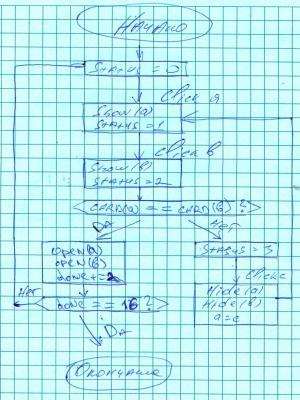 Начало
Status = 0
Click a
Show(a)
Status = 1
Click b
Show(b)
Status = 2
CARD(a) == CARD(b)?
Да
Нет
open(a)
open(b)
done += 2
Status = 3
Click c
Hide(a)
Hide(b)
a = c
Нет
done == 16?
Да
Окончание